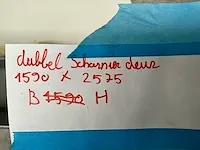 dubbel scharnier deur
1590 x 2575
B 1590 H